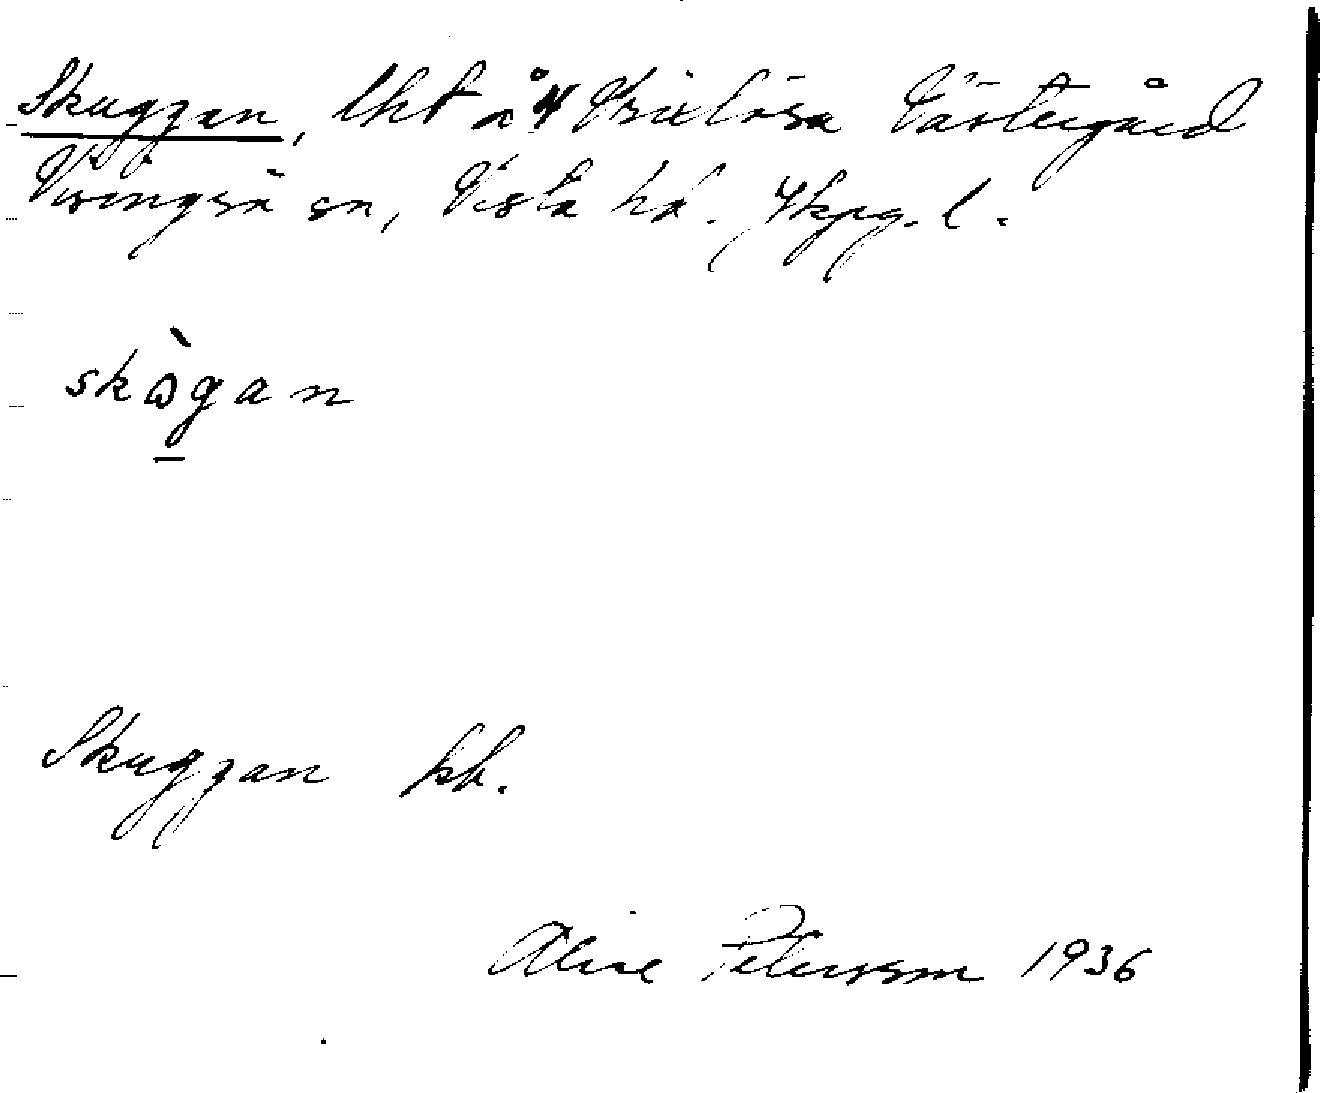 Skuggan, lht å Vrixlösa Västergård
Visingsö sn, Vista hd. Jkpg. l.
skògan
Skuggan hk.
Alice Petersson 1936